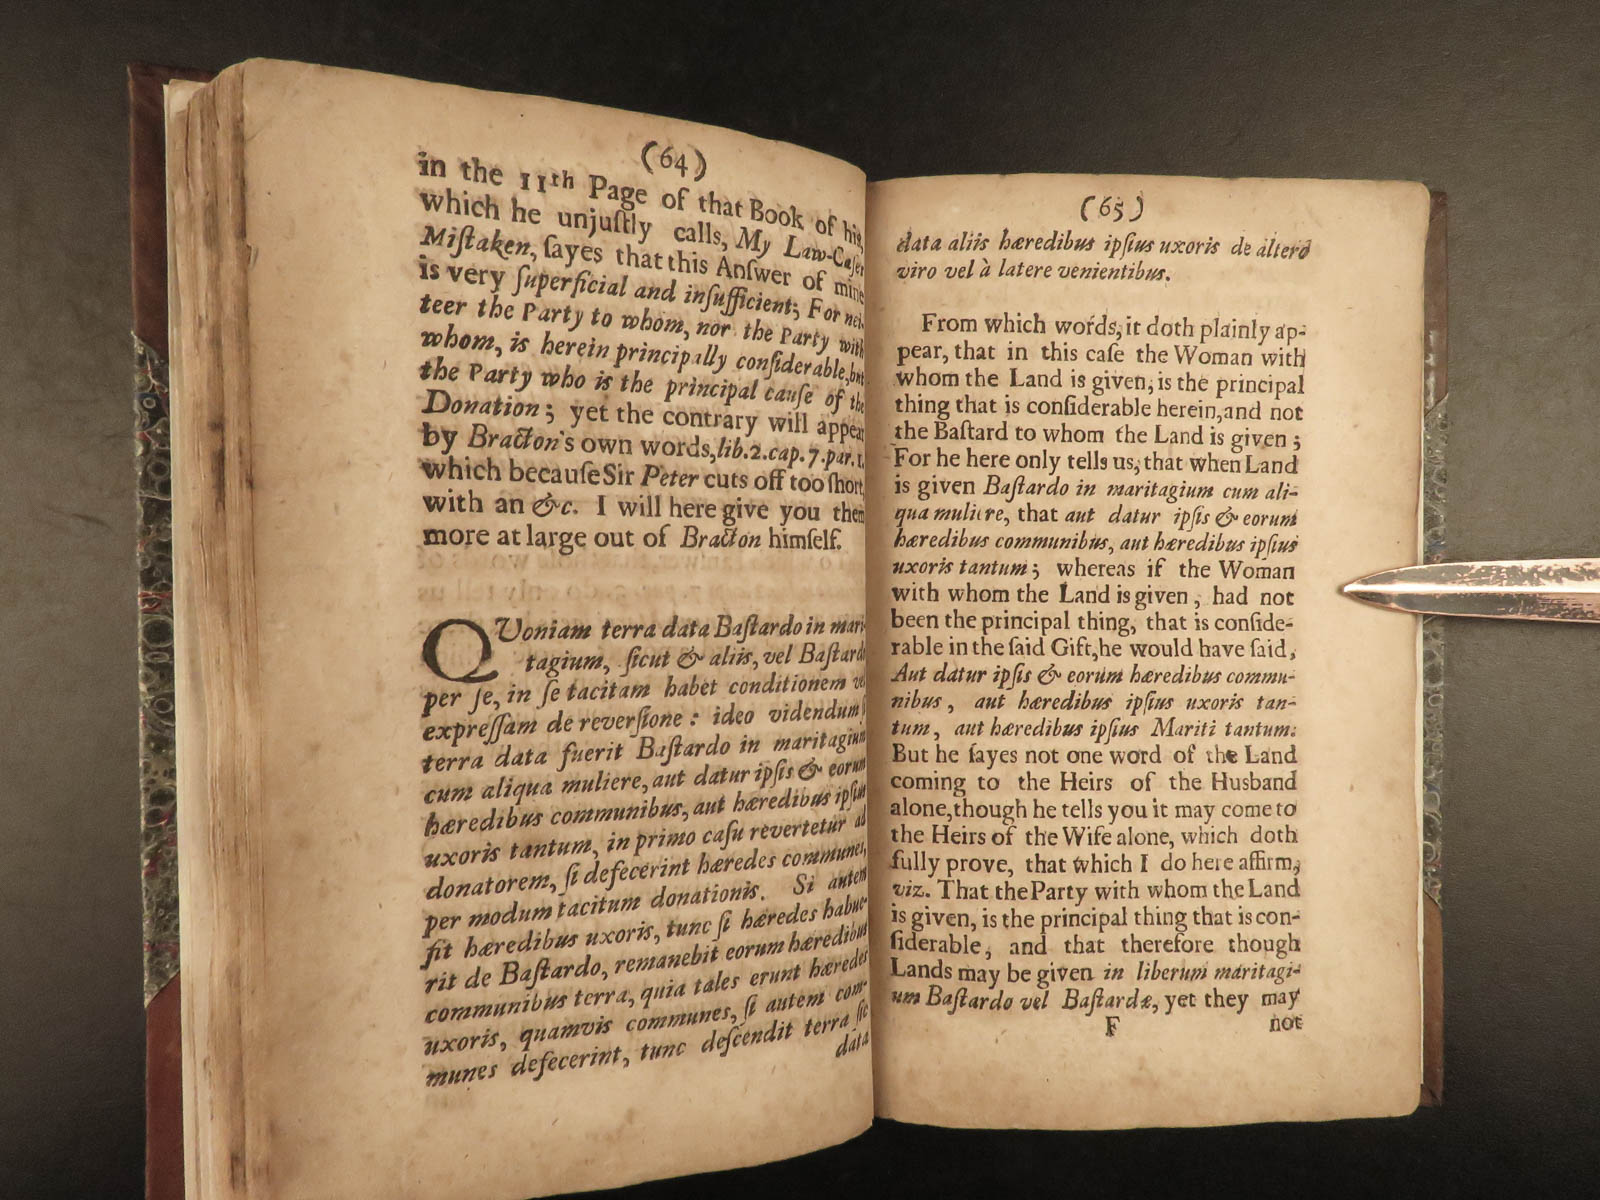 (64)
in the 11th Page of that Book of his,
which he unjuſtly calls, My Law-Caſes
Miſtaken, ſayes that this Anſwer of mine
is very ſuperficial and inſufficient; For nei-
teer the Party to whom, nor the Party with
whom, is herein principally conſiderable, but
the Party who is the principal cauſe of the
Donation; yet the contrary will appear
by Bracton's own words, lib. 2. cap. 7. par. 1.
which becauſe Sir Peter cuts off too ſhort,
with an &c. I will here give you them
more at large out of Bracton himſelf.
QUoniam terra data Baſtardo in mari-
tagium, ſicut & aliis, vel Baſtardo
per ſe, in ſe tacitam habet conditionem vel
expreſſam de reverſione: ideo videndum ſi
terra data fuerit Baſtardo in maritagium
cum aliqua muliere, aut datur ipſis & eorum
hæredibus communibus, aut hæredibus ipſius
uxoris tantum, in primo caſu revertetur ad
donatorem, ſi defecerint hæredes communes,
per modum tacitum donationis. Si autem
fit hæredibus uxoris, tunc ſi hæredes habue-
rit de Baſtardo, remanebit eorum hæredibus
communibus terra, quia tales erunt hæredes
uxoris, quamvis communes, ſi autem com-
munes defecerint, tunc deſcendit terra ſic
data
(65)
data aliis hæredibus ipſius uxoris de altero
viro vel à latere venientibus.
From which words, it doth plainly ap-
pear, that in this caſe the Woman with
whom the Land is given, is the principal
thing that is conſiderable herein, and not
the Baſtard to whom the Land is given;
For he here only tells us, that when Land
is given Baſtardo in maritagium cum ali-
qua muliere, that aut datur ipſis & eorum
hæredibus communibus, aut hæredibus ipſius
uxoris tantum; whereas if the Woman
with whom the Land is given, had not
been the principal thing, that is conſide-
rable in the ſaid Gift, he would have ſaid,
Aut datur ipſis & eorum hæredibus commu-
nibus, aut hæredibus ipſius uxoris tan-
tum, aut hæredibus ipſius Mariti tantum:
But he ſayes not one word of the Land
coming to the Heirs of the Husband
alone, though he tells you it may come to
the Heirs of the Wife alone, which doth
fully prove, that which I do here affirm,
viz. That the Party with whom the Land
is given, is the principal thing that is con-
ſiderable, and that therefore though
Lands may be given in liberum maritagi-
um Baſtardo vel Baſtardæ, yet they may
F not